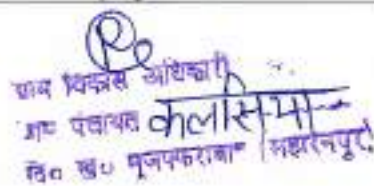 ग्राम विकास अधिकारी
ग्रा० पंचायत कलसिया
वि० ख० मुजफ्फराबाद (सहारनपुर)